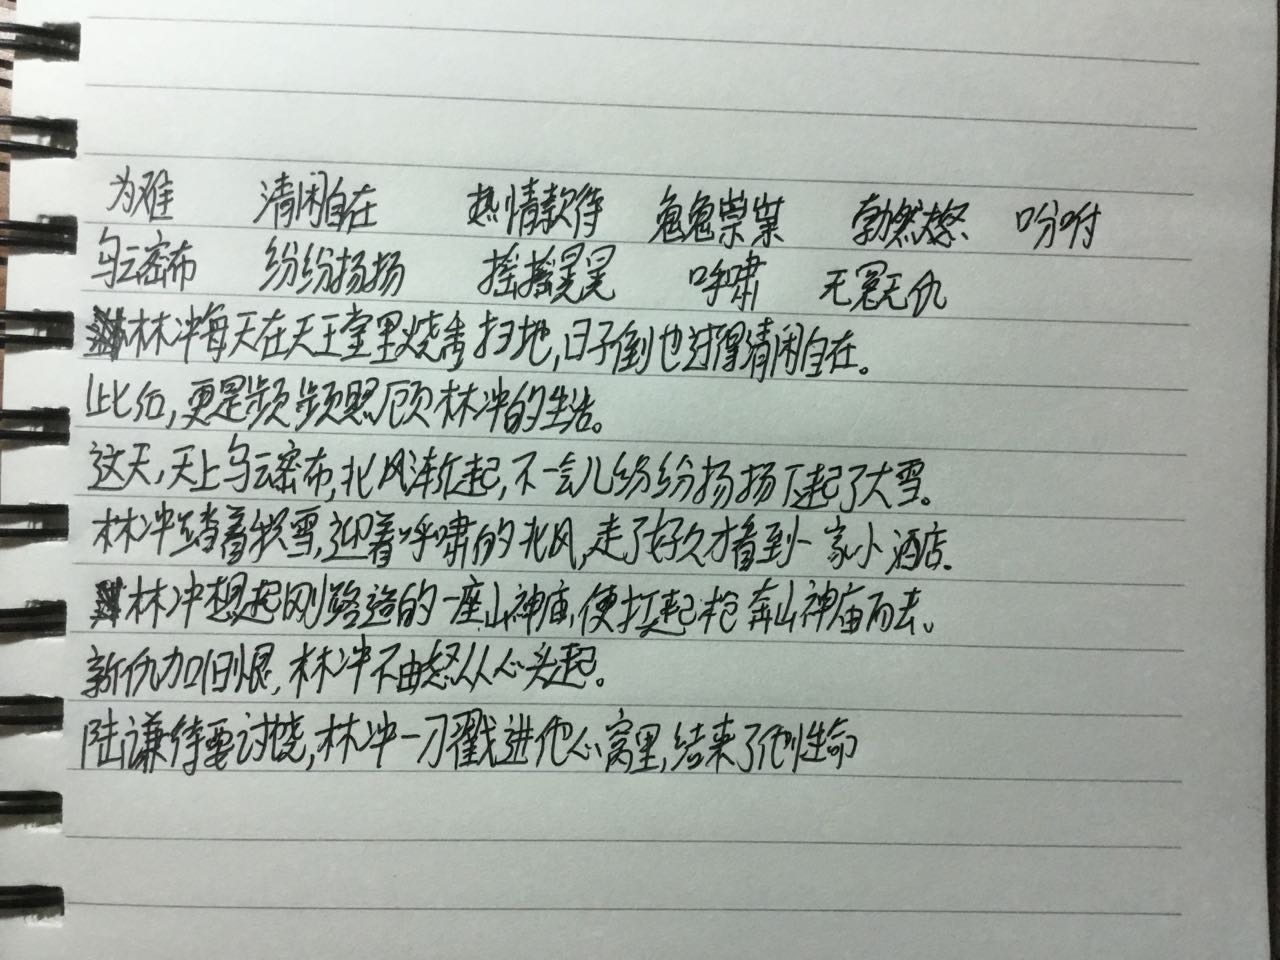 为难 清闲自在 热情款待 鬼鬼祟祟 勃然大怒 吩咐
乌云密布 纷纷扬扬 摇摇晃晃 呼啸 无冤无仇
林冲每天在天王堂里烧香扫地,日子倒也过得清闲自在。
此后,更是频频照顾林冲的生活。
这天,天上乌云密布,北风渐起,不一会儿纷纷扬扬下起了大雪。
林冲踏着积雪,迎着呼啸的北风,走了好久才看到一家小酒店。
林冲想起刚路造的一座山神庙,便扛起枪奔山神庙而去。
新仇加旧恨,林冲不由怒从心头起。
陆谦待要讨饶,林冲一刀戳进他心窝里,结束了他性命